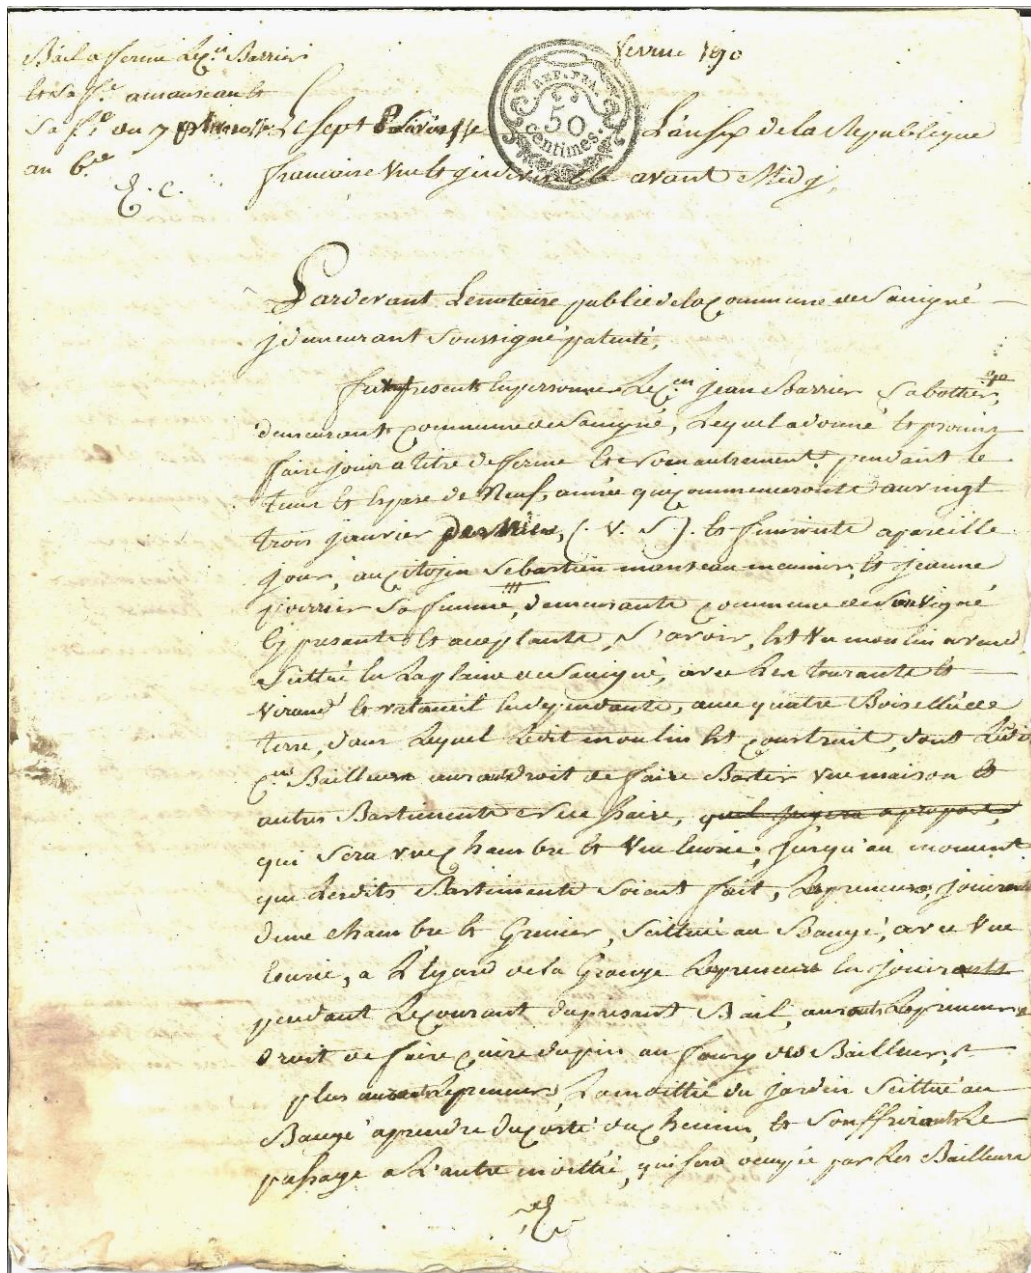 Bail a ferme Le Cen Barrier
fevrier 1790
et sa fe a manseau et
REP. FRA.
50
centimes.
Sa fe du 7 pluviosse
an 6eme
Le sept Pluviosse L'an six de la Republique
francaise une et indivisible avant Midy,
Pardevant Le notaire public de la Commune de Sauigné
y demeurant soussigné patenté,
fut present en personne Le Cen jean Barrier Sabottier,
demeurant Commune de Sauigné, Lequel a donné et promis
faire jouir a titre de ferme et non autrement pendant le
tems et espase de Neuf, année qui commenceronte au vingt
trois janvier dernier, (. V. S). et finironte a pareille
jour, au Citoyen Sebastien manseau meunier, et jeanne
poirrier Sa femme, demeurante Commune de Sauvigné
Cy presente et acceptante, S'avoir, est un moulin a vend,
Scittué en La plaine de Sauigné, avec Les tourante et
virand et en dependante, avec quatre Boisellée de
terre, dans Lequel Ledit moulin est Construit, dont Ledit
Cen Bailleur aura droit de faire Bastir une maison et
autres Bastimente necesshaire, quil jugera apropost,
qui sera une Chambre et une Eurie; jusqu'au moment
que Lesdits Bastimente Soiant fait, Le preneurs, jouironte
d'une chambre et Grenier, Scittué au Baugé, avec une
Eurie, a L'Egard de la Grange Le preneurs en jouironte
pendant Le courant du presant Bail, auronts Le preneurs
droit de faire Cuire du pin au fourg des Bailleur,
plus auront Le preneurs, La moittié du jardin Scittué au
Baugé a prendre du Costé du Chemin, et Souffrironts Le
passage a L'autre moittié, qui sera occupée par Les Bailleurs